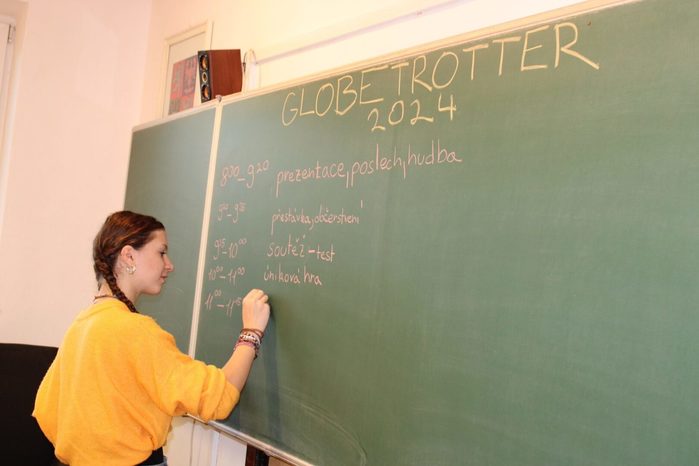 GLOBETROTTER
2024
8⁰⁰-9²⁰ prezentace, poslech, hudba
přestávka, občerstvení
-10⁰⁰ soutěž - test
10⁰⁰-11⁰⁰ úniková hra
11⁰⁰-11